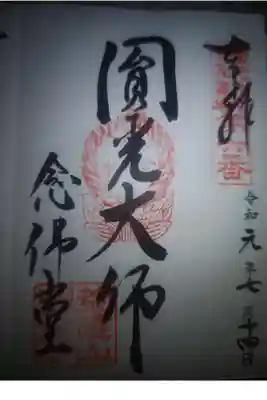 奉拝
令和元年七月十四日
圓光大师
念佛堂